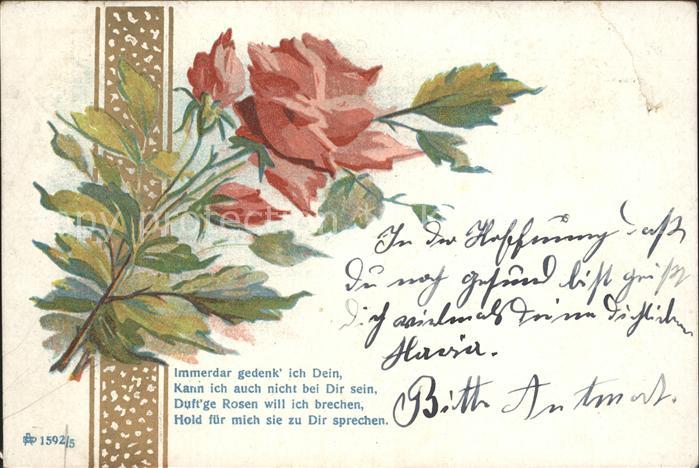 In der Hoffnung daß
Du noch gesund bist grüßt
Dich vielmals deine
Maria.
Bitte Antwort.
Immerdar gedenk' ich Dein,
Kann ich auch nicht bei Dir sein,
Duft'ge Rosen will ich brechen,
Hold für mich sie zu Dir sprechen.
1592/5